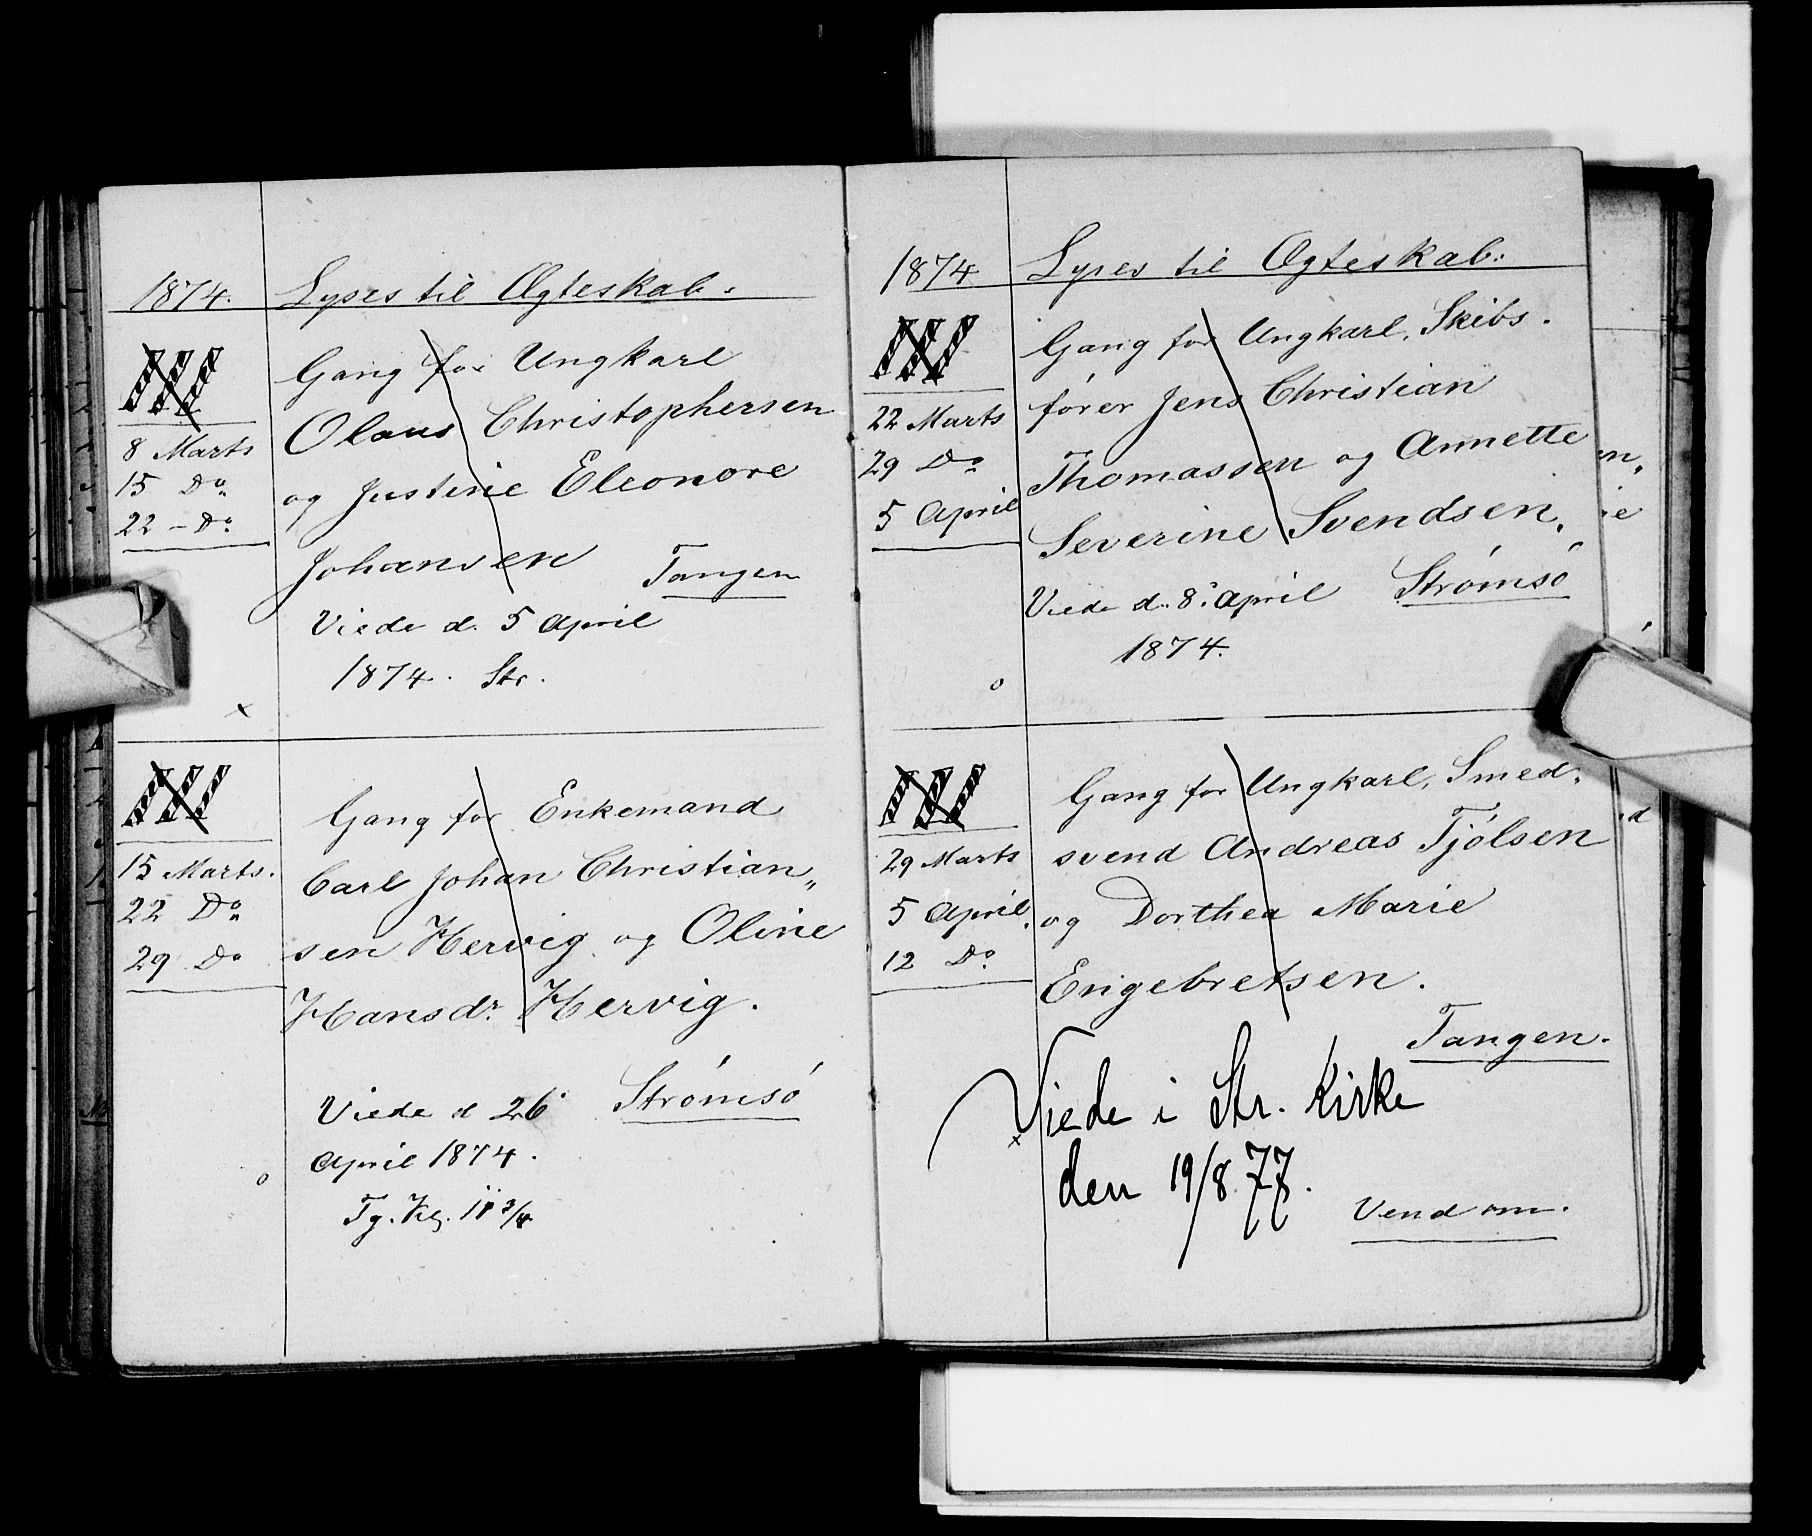 1874. Lyses til Ægteskab.
III Gang for Ungkarl
8 Marts Olaus Christophersen
15 Do og Justine Eleonore
22 – Do Johansen Tangen
Viede d. 5 April
1874. Str.
x
III Gang for Enkemand
15 Marts. Carl Johan Christian„
22 Do sen Hervig og Oline
29 Do Hansdr Hervig.
Viede d 26 Strömsö
April 1874.
o
Tg. Kl.
1874 Lyses til Ægteskab.
III Gang for Ungkarl, Skibs.
22 Marts fører Jens Christian
29 Do Thomassen og Annette
5 April Severine Svendsen.
Viede d. 8. April Strömsö
1874.
o
III Gang for Ungkarl, Smed.
29 Marts svend Andreas Tjölsen
5 April. og Dorthea Marie
12 Do Engebretsen.
Tangen.
x Viede i Str. Kirke
den 19/8 77.
Vend om.